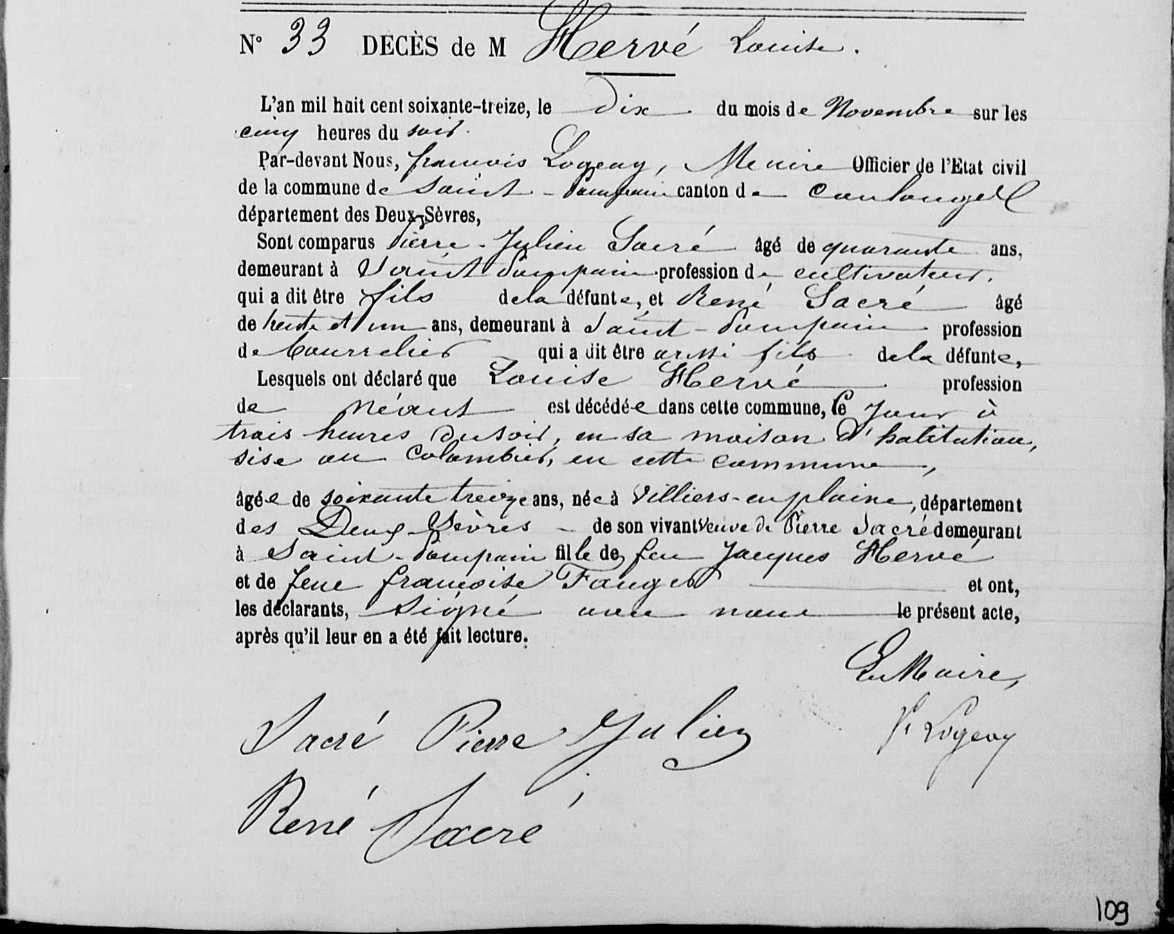 N° 33 DECÈS de M Hervé Louise.
L'an mil huit cent soixante-treize, le dix du mois de Novembre sur les
cinq heures du soir.
Par-devant Nous, françois Logeay, Maire Officier de l'Etat civil
de la commune de Saint-Pompain canton de Coulonges
département des Deux-Sèvres,
Sont comparus Pierre-Julien Sacré âgé de quarante ans,
demeurant à Saint Pompain profession de cultivateur,
qui a dit être fils de la défunte, et René Sacré âgé
de trente et un ans, demeurant à Saint-Pompain profession
de bourrelier qui a dit être aussi fils de la défunte,
Lesquels ont déclaré que Louise Hervé profession
de néant est décédée dans cette commune, ce jour à
trois heures du soir, en sa maison d'habitation,
sise au Colombier, en cette commune,
âgée de soixante treize ans, née à Villiers-en-plaine, département
des Deux Sèvres - de son vivant veuve de Pierre Sacré demeurant
à Saint-Pompain fille de feu Jacques Hervé
et de feue françoise et ont,
les déclarants, signé avec nous le présent acte,
après qu'il leur en a été fait lecture.
Le Maire,
Sacré Pierre Julien
Fs Logeay
René Sacré
109